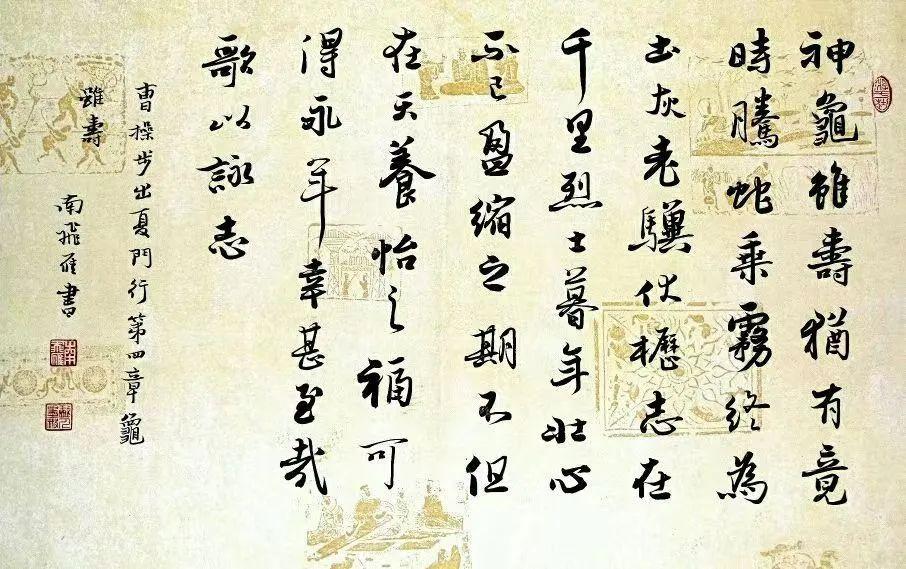 神龜雖壽猶有竟
時騰蛇乗霧終為
土灰老驥伏櫪志在
千里烈士暮年壯心
不已盈縮之期不但
在天養怡之福可
得永年幸甚至哉
歌以詠志
曹操步出夏門行第四章龜
雖壽
南飛雁書